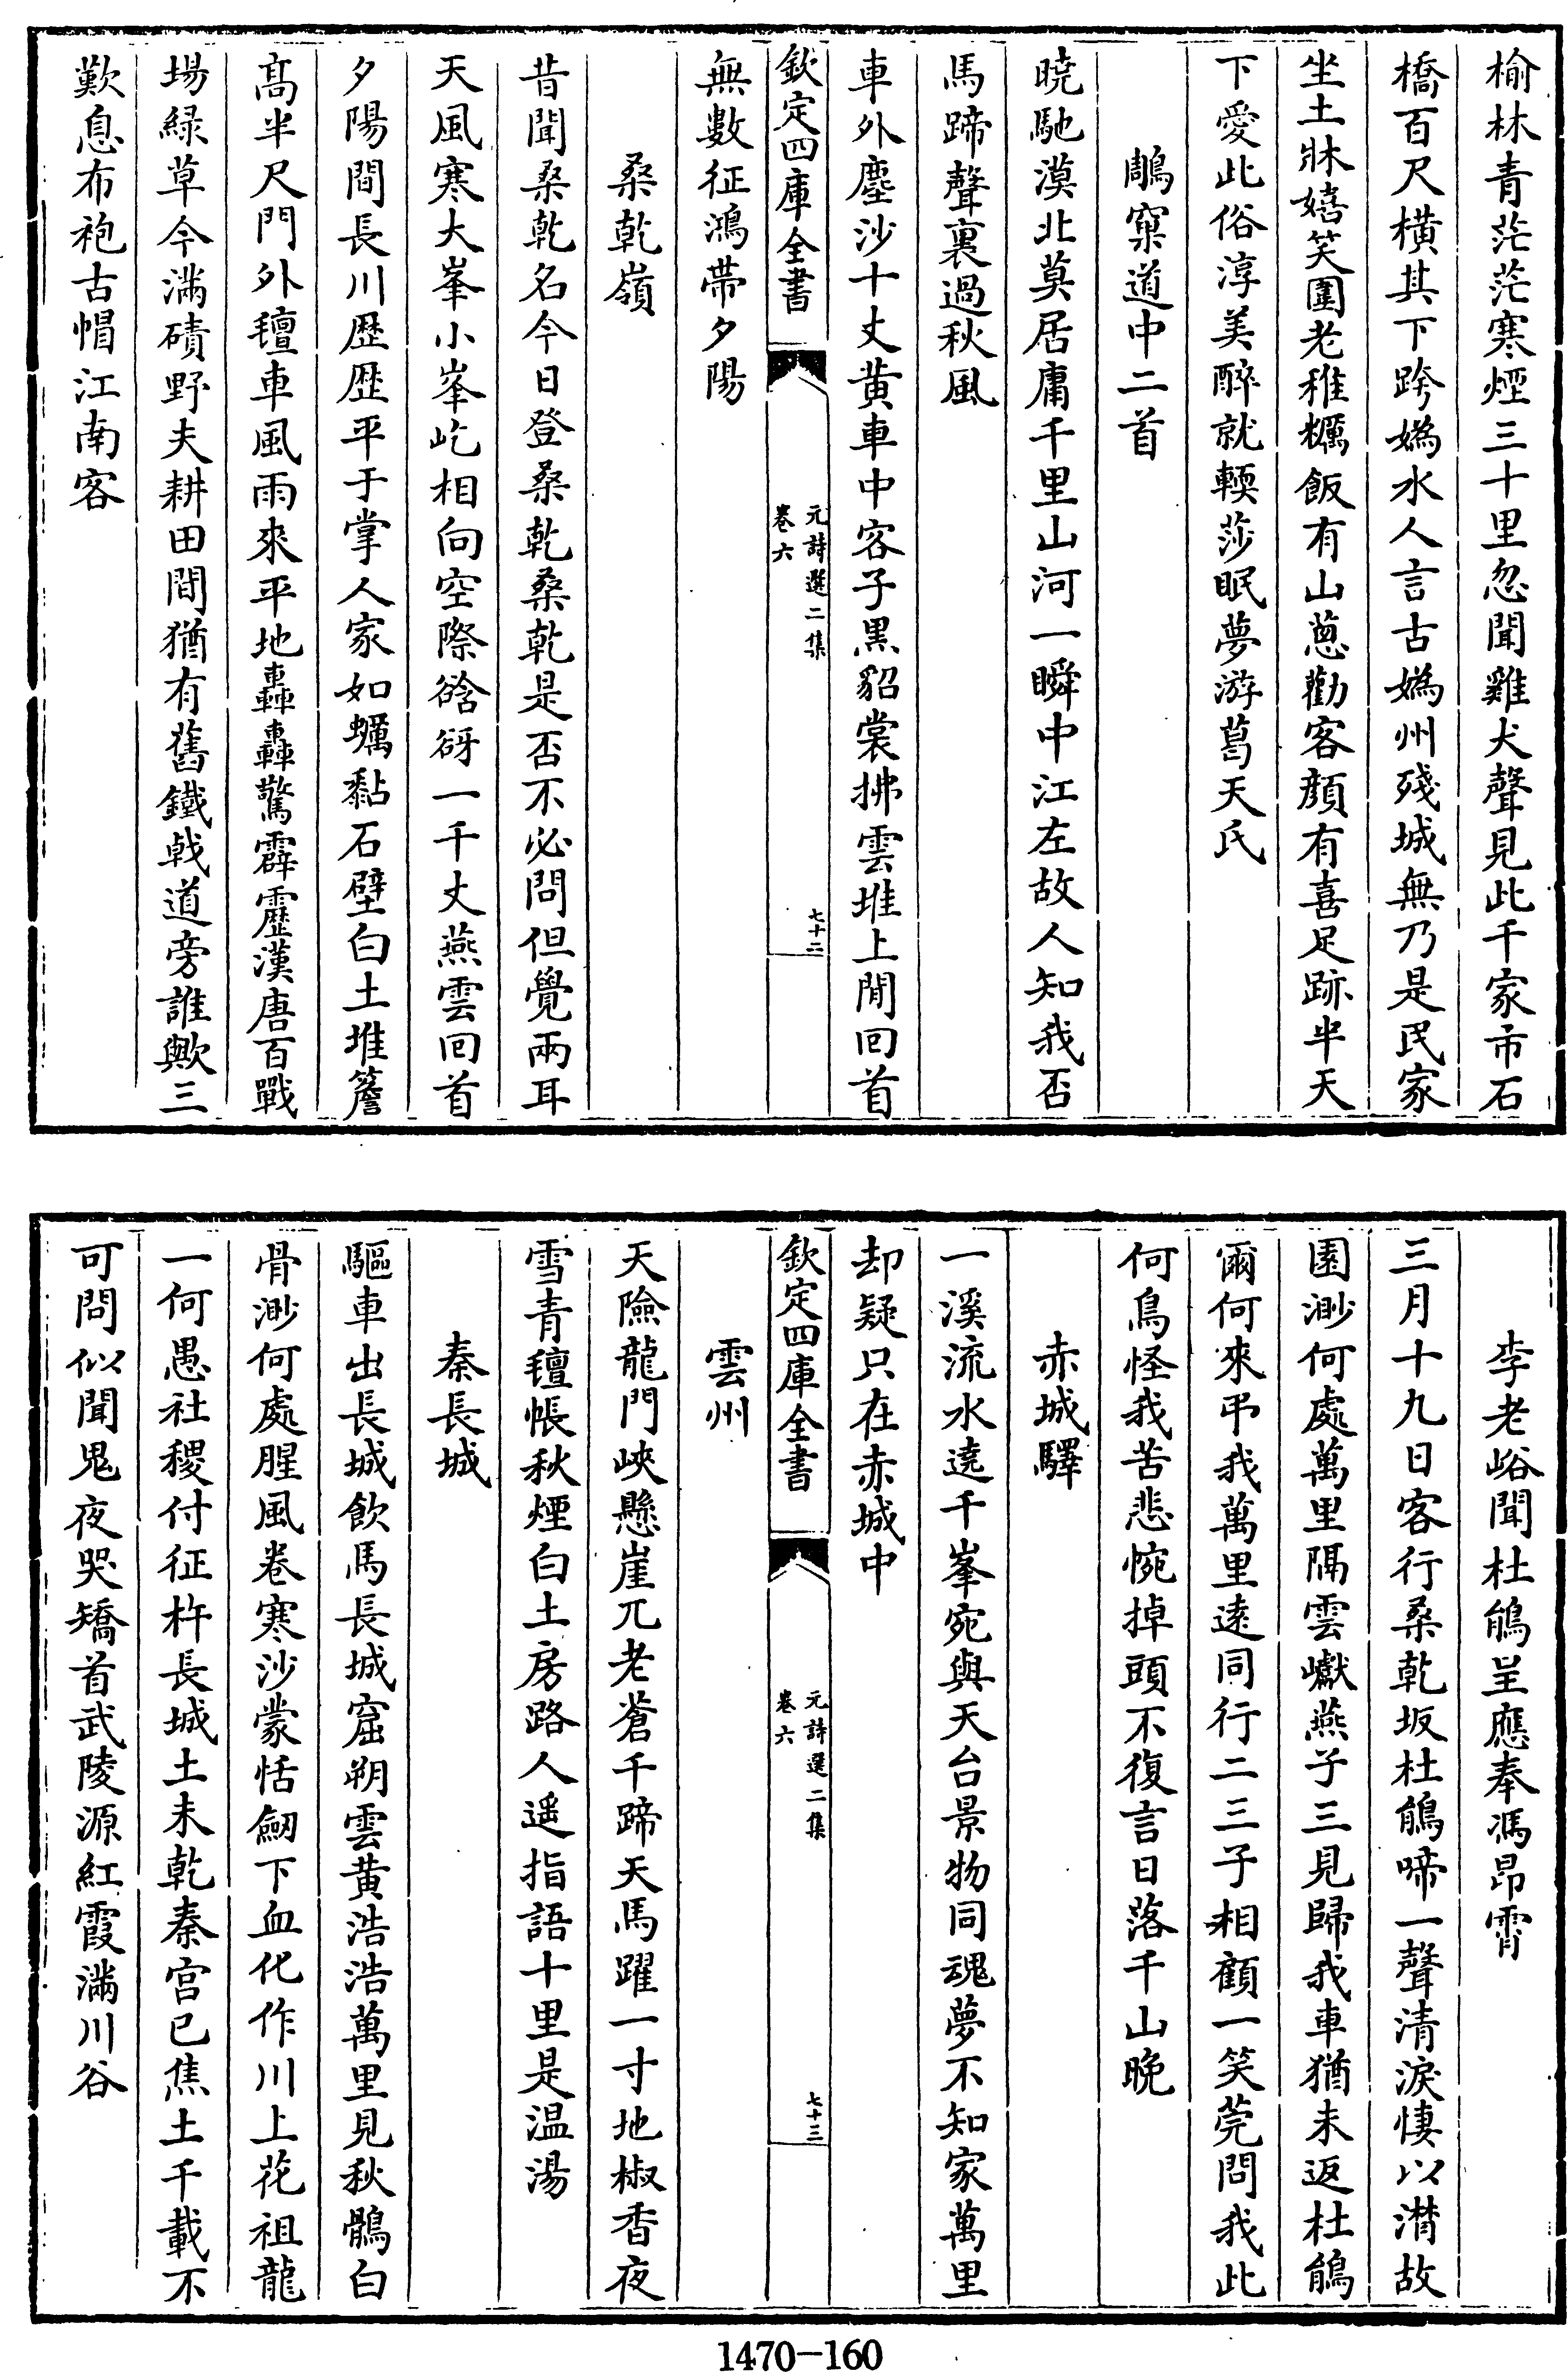 榆林青茫茫寒煙三十里忽聞雞犬聲見此千家市石
橋百尺橫其下跨媯水人言古媯州殘城無乃是民家
坐土牀嬉笑圍老稚糲飯有山蔥勸客顔有喜足跡半天
下愛此俗淳美醉就輭莎眠夢游葛天氏
鵰窠道中二首
曉馳漠北莫居庸千里山河一瞬中江左故人知我否
馬蹄聲裏過秋風
車外塵沙十丈黄車中客子黑貂裳拂雲堆上閒回首
欽定四庫全書
元詩選二集
卷六
七十二
無數征鴻帶夕陽
桑乾嶺
昔聞桑乾名今日登桑乾桑乾是否不必問但覺兩耳
天風寒大峯小峯屹相向空際谽谺一千丈燕雲回首
夕陽間長川歴歴平于掌人家如蠣黏石壁白土堆簷
髙半尺門外氊車風雨來平地轟轟驚霹靂漢唐百戰
塲緑草今滿磧野夫耕田間猶有舊鐵㦸道旁誰歟三
歎息布袍古帽江南客
李老峪聞杜鵑呈應奉馮昂霄
三月十九日客行桑乾坂杜鵑啼一聲清淚悽以潸故
園渺何處萬里隔雲巘燕子三見歸我車猶未返杜鵑
爾何來弔我萬里逺同行二三子相顧一笑莞問我此
何鳥怪我苦悲惋掉頭不復言日落千山晚
赤城驛
一溪流水遶千峯宛與天台景物同魂夢不知家萬里
却疑只在赤城中
欽定四庫全書
元詩選二集
卷六
七十三
雲州
天險龍門峽懸崖兀老蒼千蹄天馬躍一寸地椒香夜
雪青氊帳秋煙白土房路人遥指語十里是温湯
秦長城
驅車出長城飲馬長城窟朔雲黄浩浩萬里見秋鶻白
骨渺何處腥風卷寒沙蒙恬劒下血化作川上花祖龍
一何愚社稷付征杵長城土未乾秦宫已焦土千載不
可問似聞鬼夜哭矯首武陵源紅霞滿川谷
1470-160